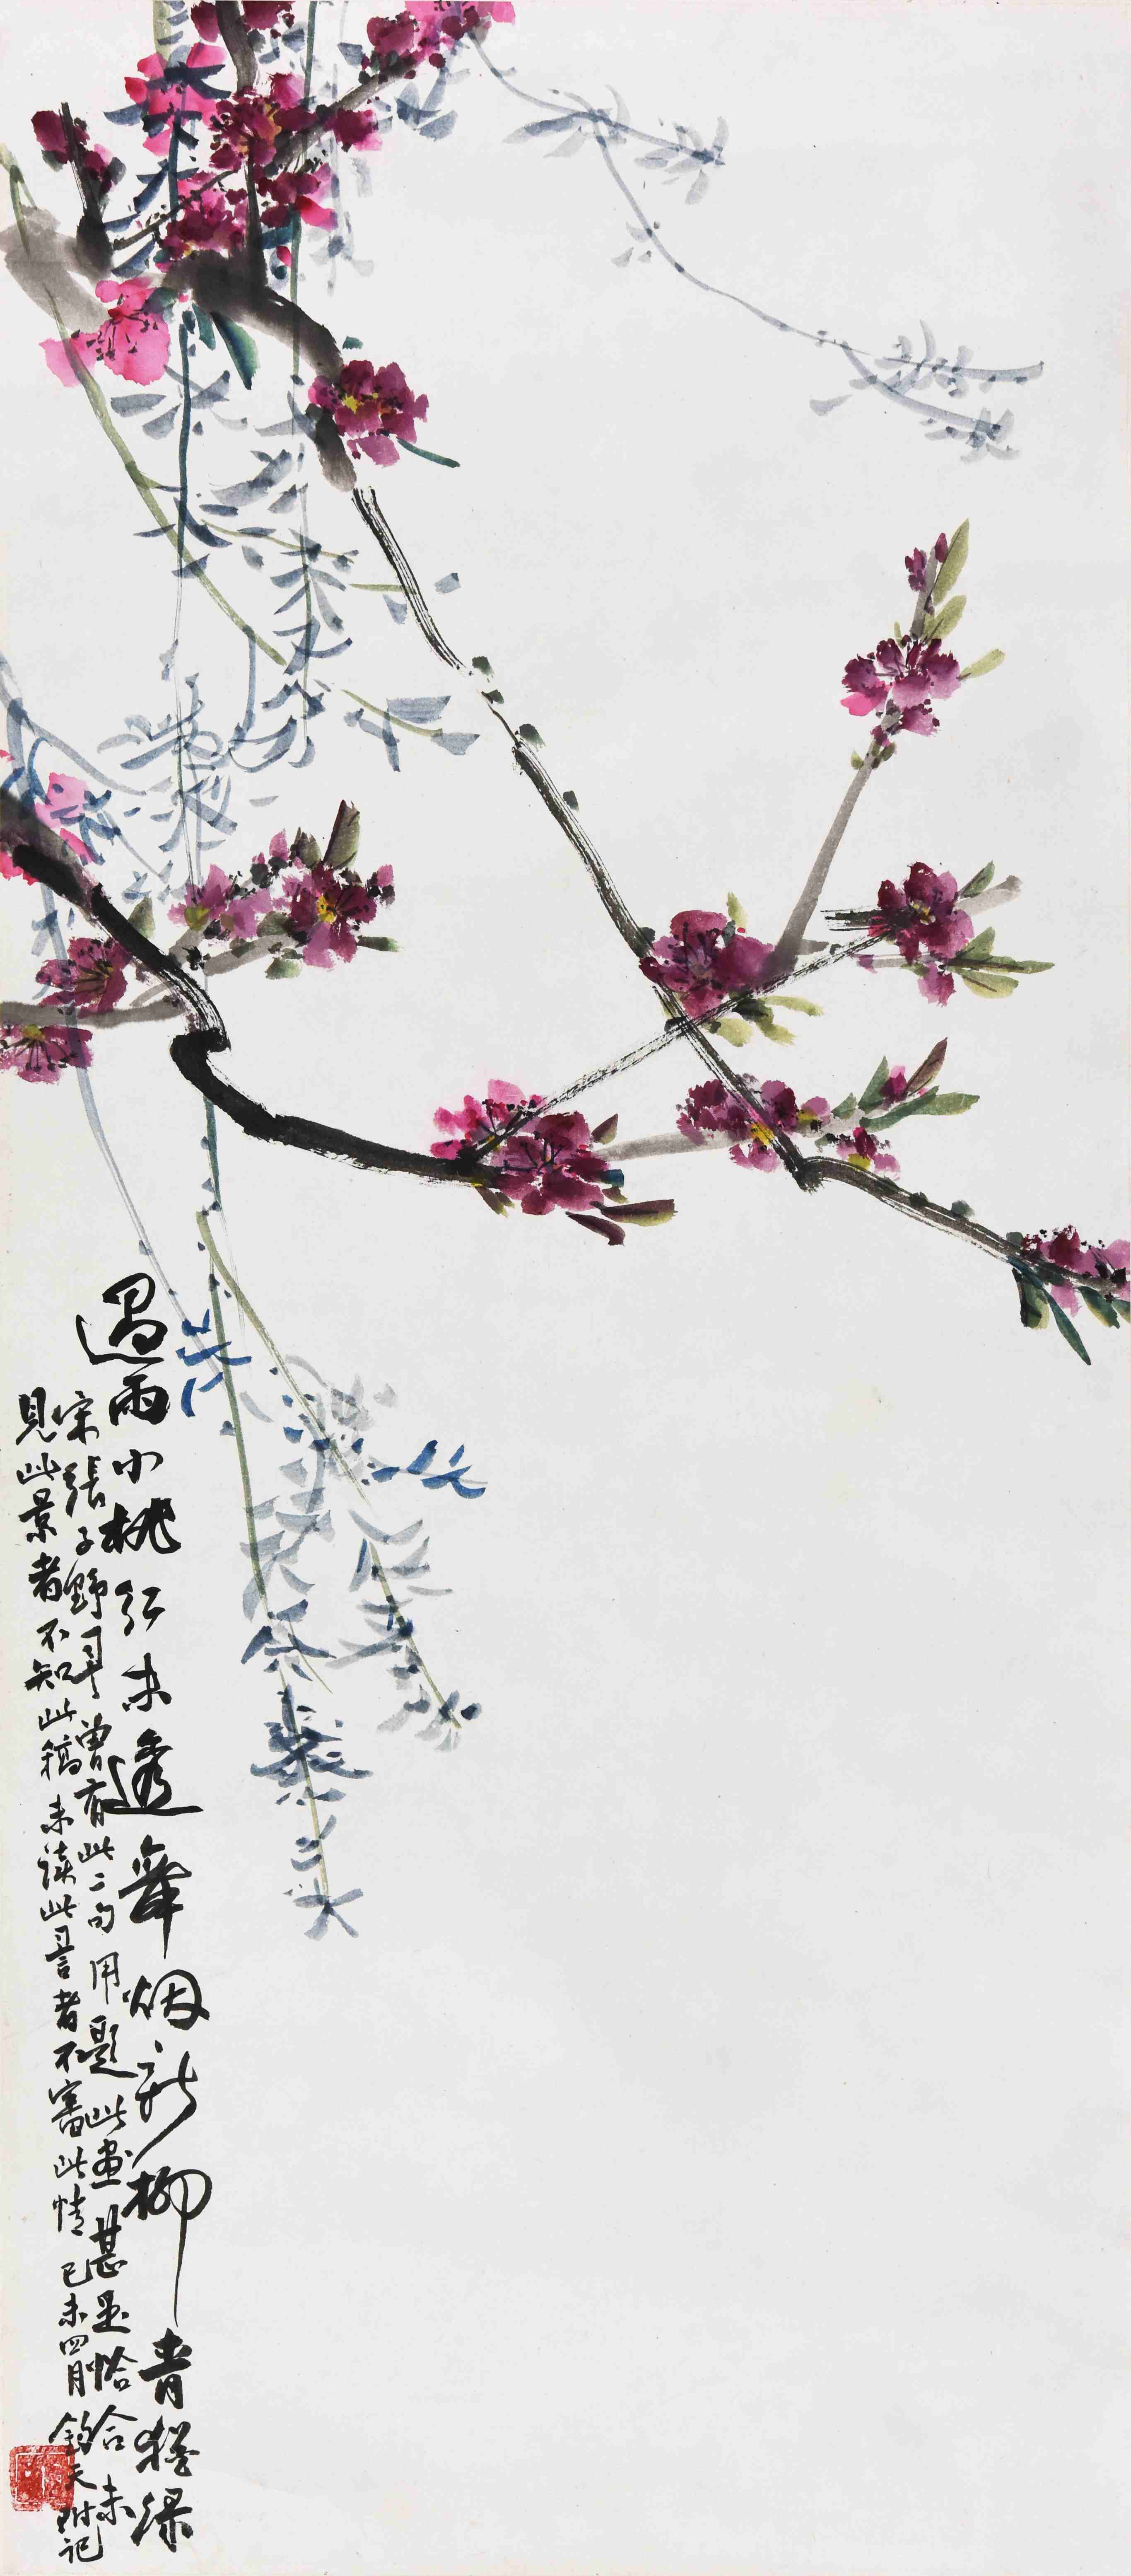 過雨小桃紅未透舞烟新柳青猶弱
宋張子野詞曾有此二句用題此畫甚是恰合未
見此景者不知此稿未讀此詞者不審此情己未四月鈞天附記